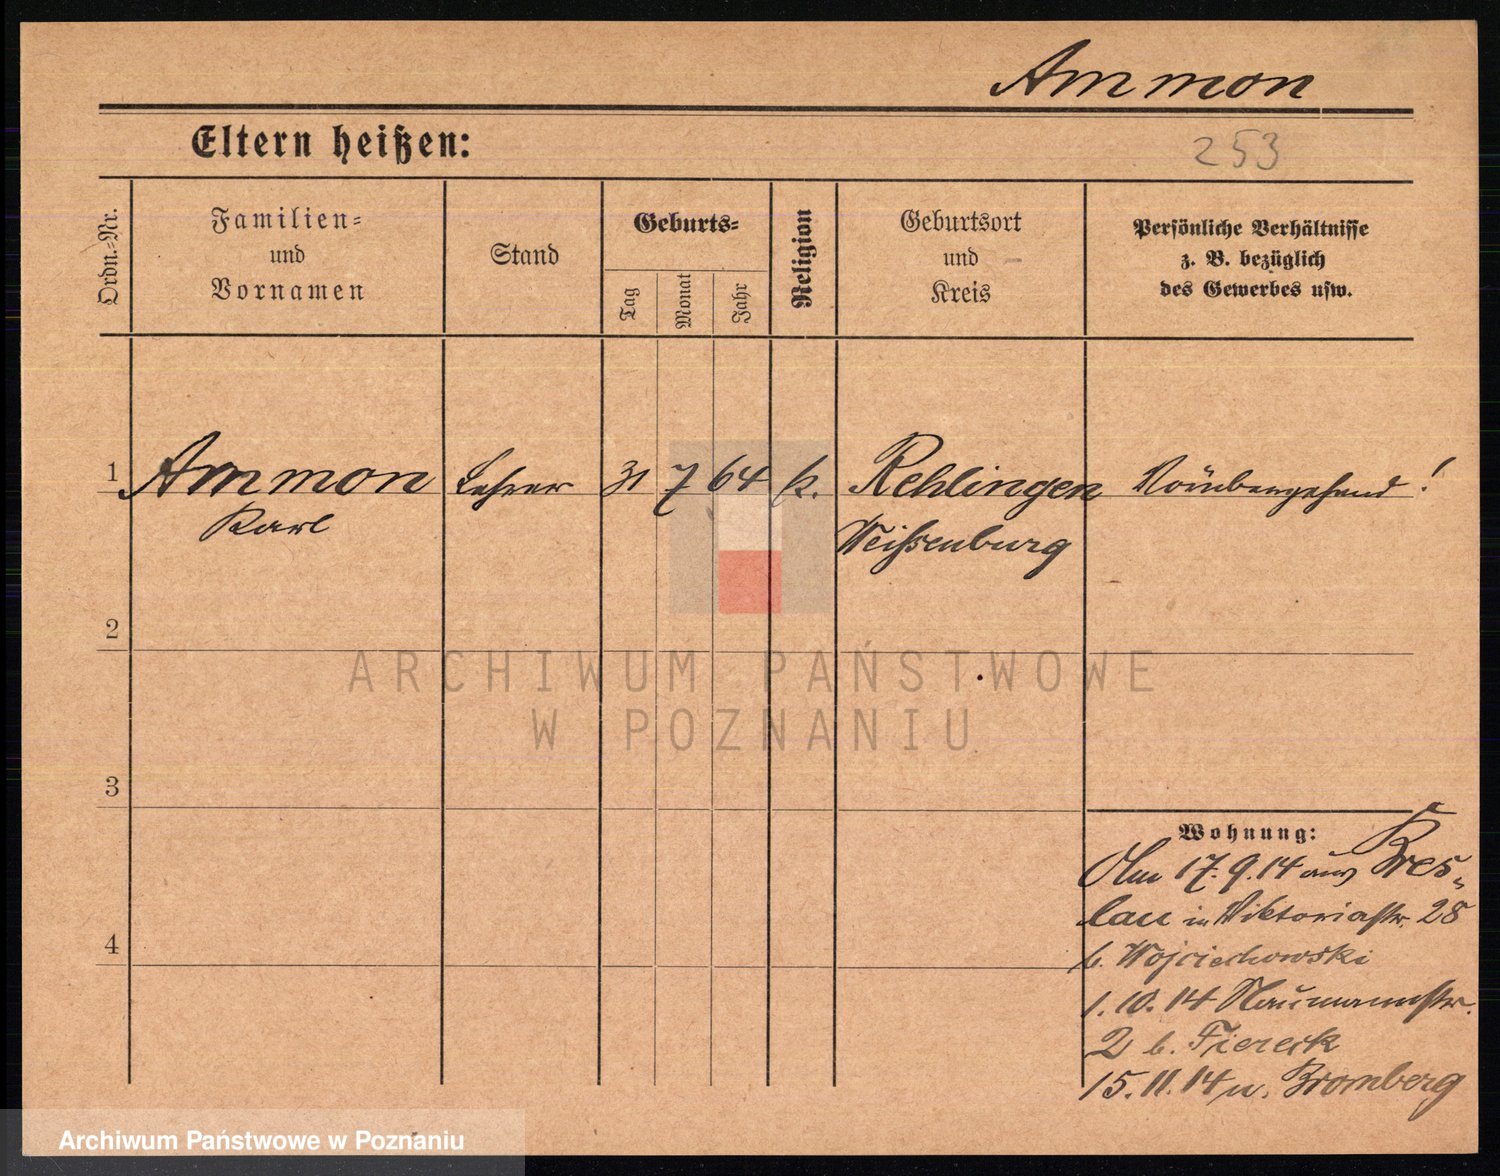 Ammon
Eltern heißen:
253
Ordn.-Nr.
Familien-
und
Vornamen
Stand
Geburts-
Tag
Monat
Jahr
Religion
Geburtsort
und
Kreis
Persönliche Verhältnisse
z. B. bezüglich
des Gewerbes usw.
1 Ammon Lehrer 31 7 64 k. Rehlingen Vorübergehend!
Karl Weißenburg
2
ARCHIWUM PAŃSTWOWE
W POZNANIU
3
Wohnung:
17.9.14 aus Bres-
lau in Viktoriastr. 28
b. Wojciechowski
4
1.10.14 Naumannstr.
2 b. Fiereck
15.11.14 n. Bromberg
Archiwum Państwowe w Poznaniu